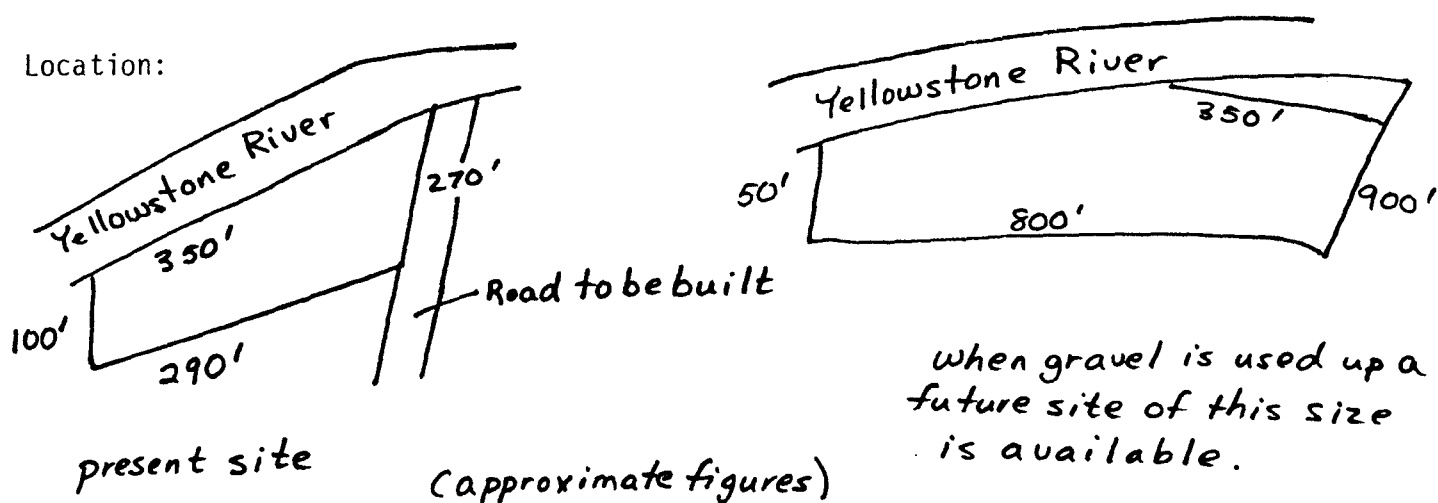 Location:
Yellowstone River
350'
270'
100'
290'
Road to be built
present site
(approximate figures)
Yellowstone River
350'
50'
800'
900'
when gravel is used up a
future site of this size
is available.